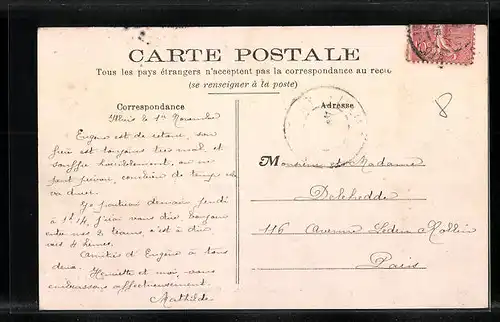 CARTE POSTALE
Tous les pays étrangers n'acceptent pas la correspondance au recto
(se renseigner à la poste)
Correspondance
Adresse
8
le 1er Novembre
Eugène est de retour, son
frère est toujours très mal et
souffre horriblement, on ne
peut prévoir, combien de temps
durer.
Je partirai demain jeudi
à 1h 14, j'irai vous dire bonjour
entre nos 2 trains, c'est à dire
vers 4 heures.
Amitiés d'Eugène à tous
deux.
Henriette et moi, vous
embrassons affectueusement.
Mathilde
Monsieur et Madame
Delehedde
116 Avenue Ledru Rollin
Paris